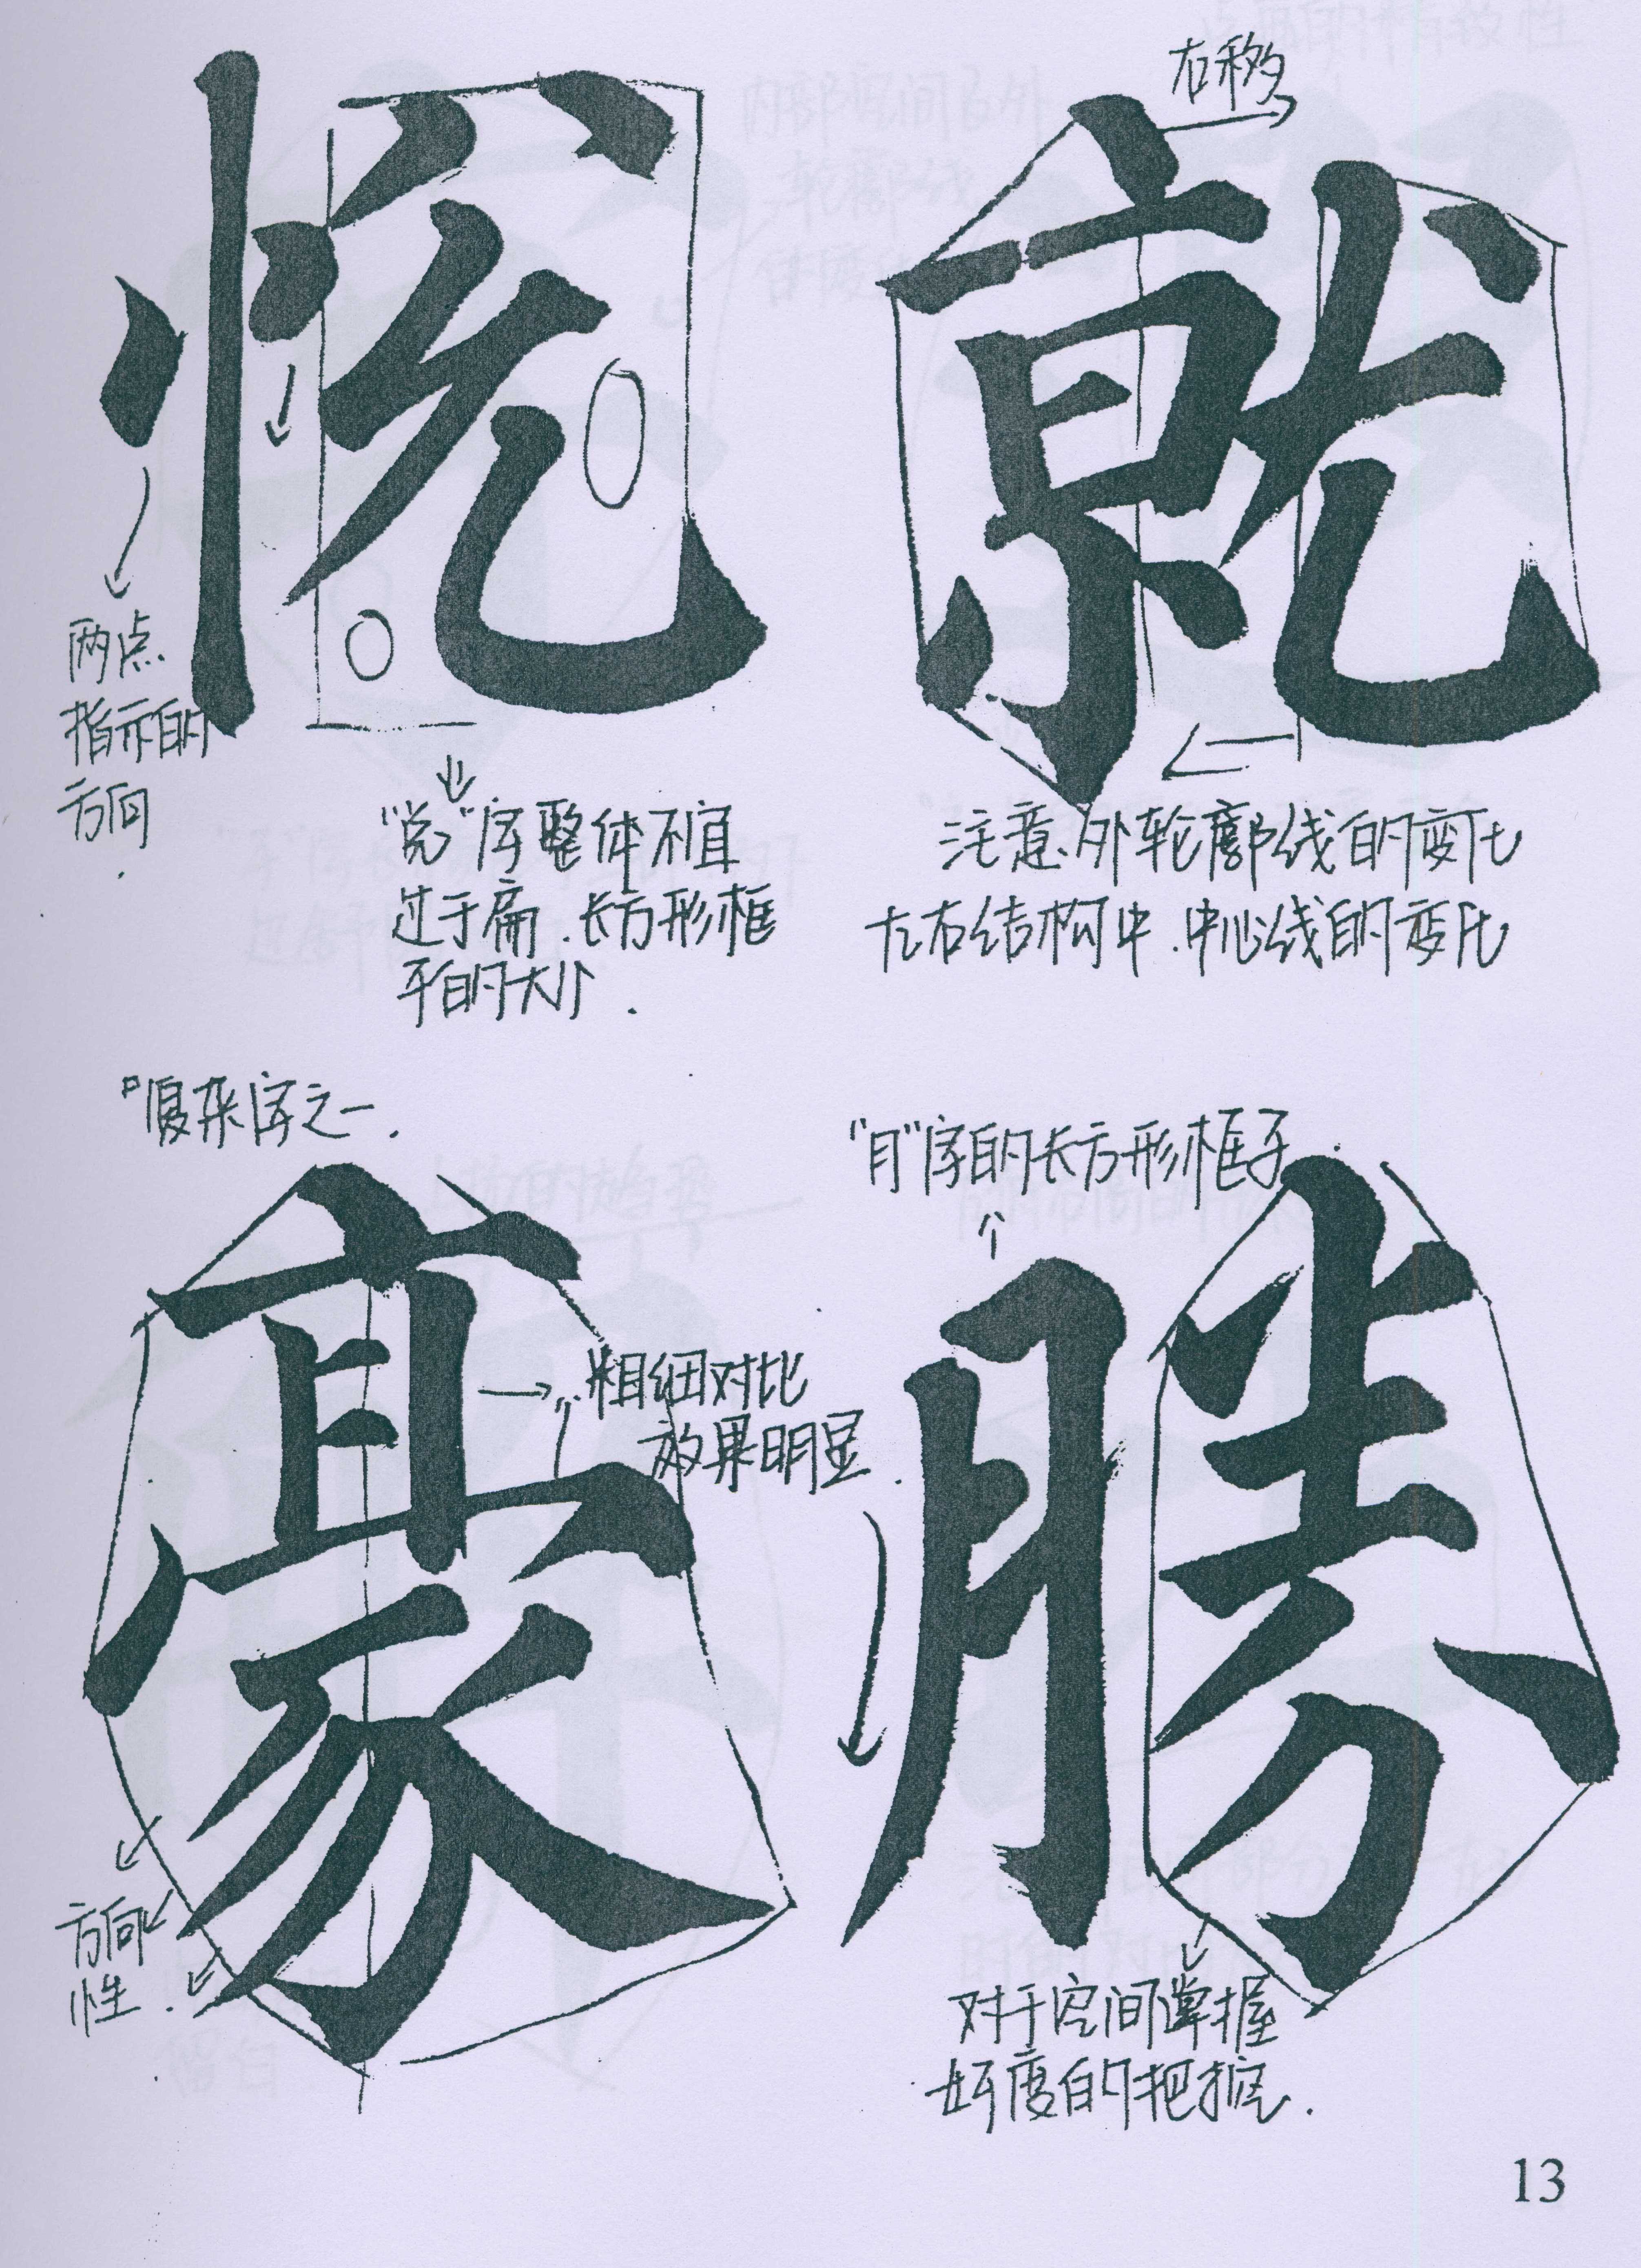 右移
悦
就
两点
指示的
方向
"兑"字整体不宜
过于扁.长方形框
平的大小.
注意外轮廓线的变化
左右结构中.中心线的变化
复杂字之一.
"月"字的长方形框子
豪
勝
粗细对比
效果明显.
方向
性.
对于空间掌握
好度的把握.
13